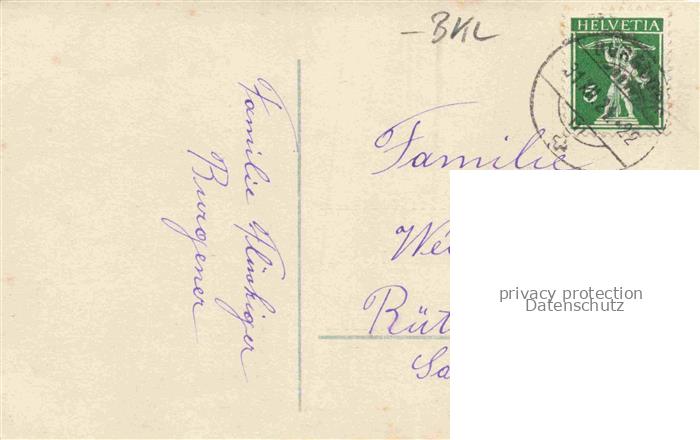 – BKL
HELVETIA
Familie Flückiger
Burgener
Familie
We
Rüt
Sa
privacy protection
Datenschutz